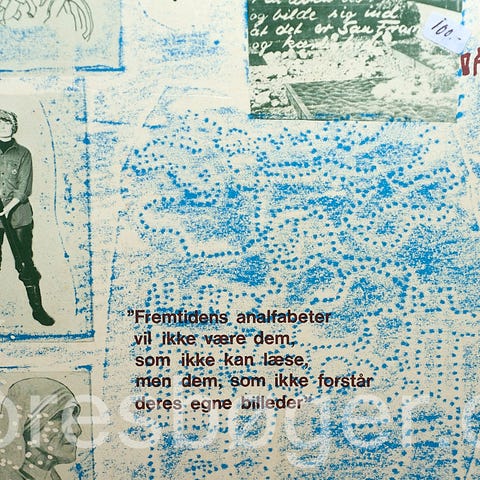 og bilde sig ind
at det er San Fran
og kan
100.-
"Fremtidens analfabeter
vil ikke være dem,
som ikke kan læse,
men dem, som ikke forstår
deres egne billeder"